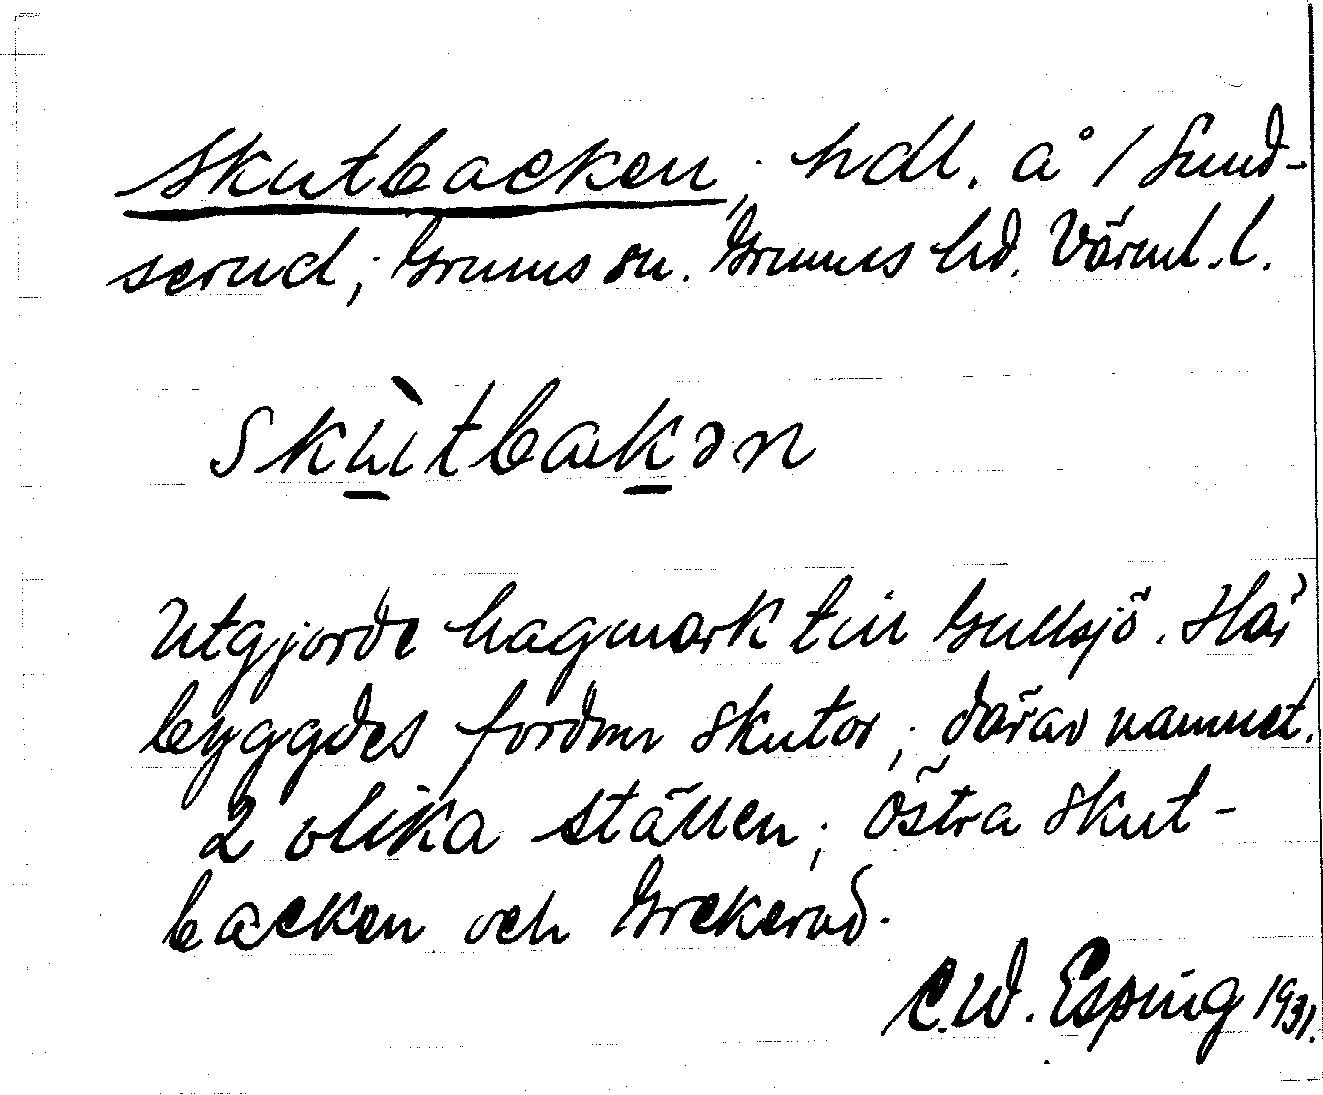 Skutbacken; hdl. å 1 Sund-
serud; Grums sn. Grums hd. Värml. l.
Skùtbakən
Utgjorde hagmark till Gullsjö. Här
byggdes fordom skutor; därav namnet.
2 olika ställen; Östra Skut-
backen och Grekerud.
C.W. Esping 1931.